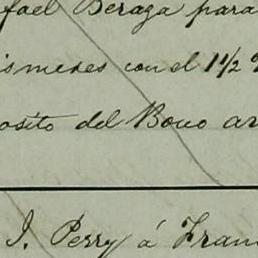 fael Beraga para
ismeses con el 1 1/2
osito del Bouo ar
J. Perry á Fran